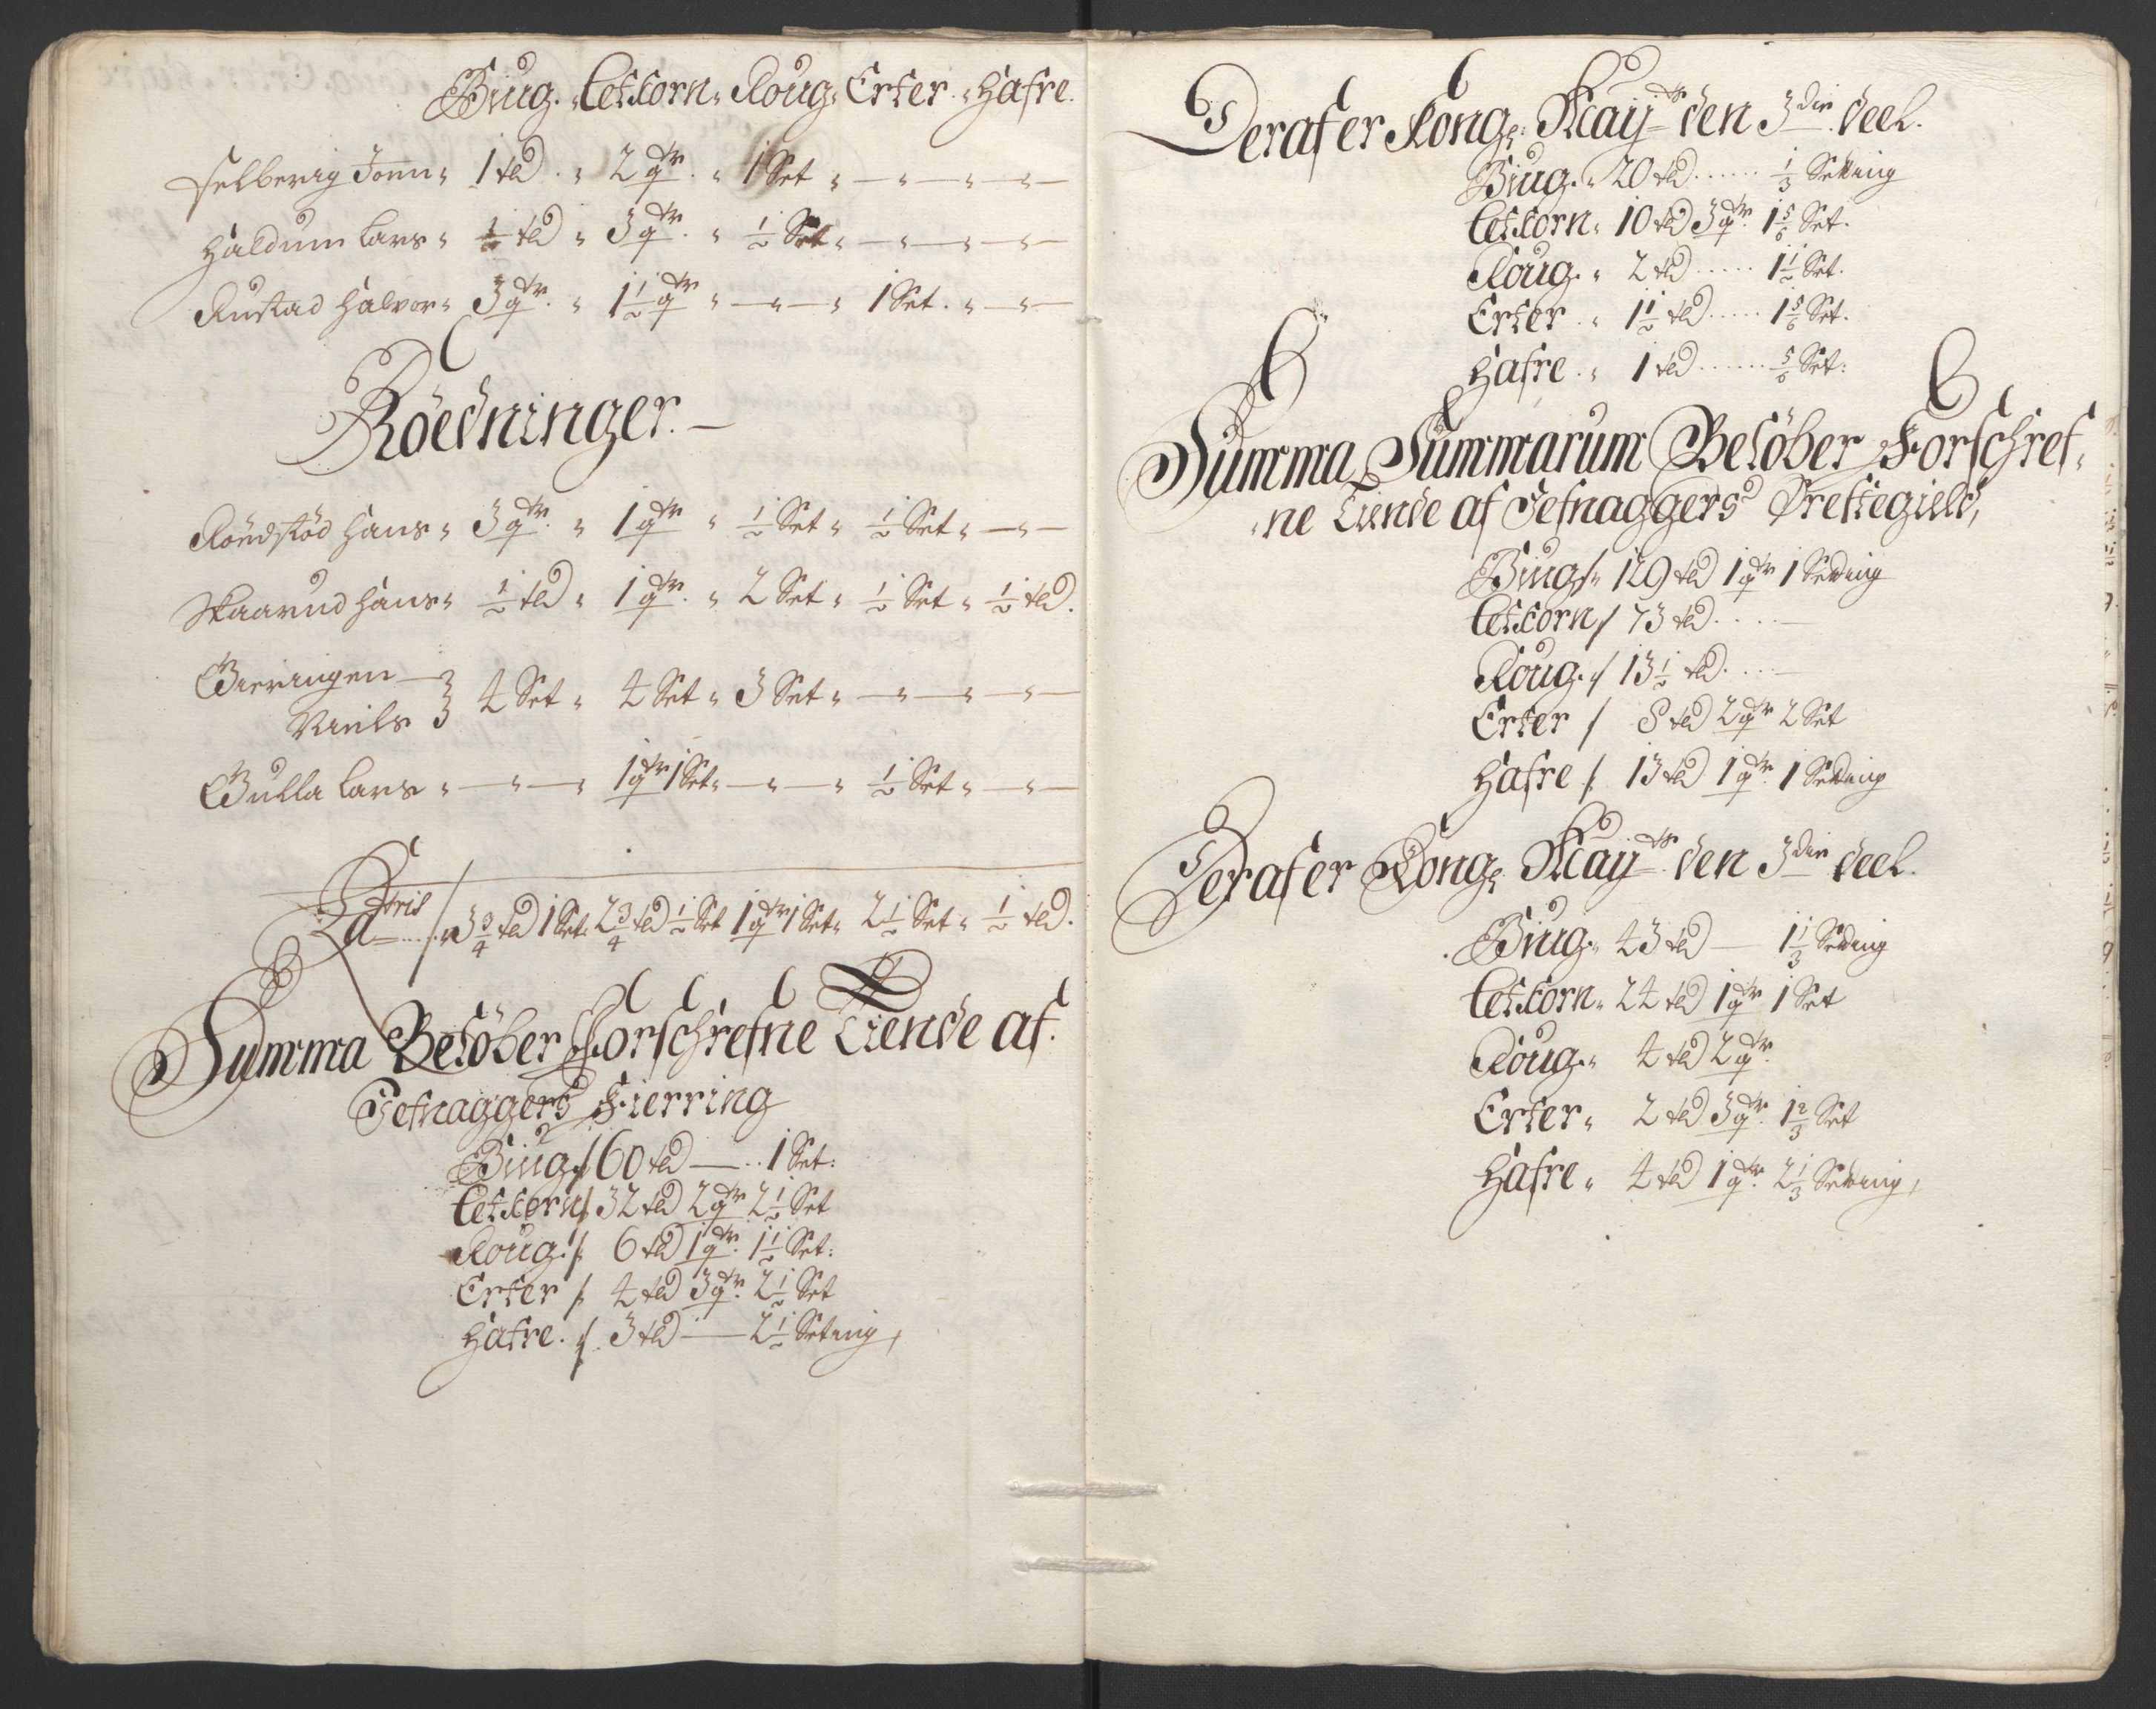 Biug. Letkorn. Roug. Erter. Hafre.
Selberig Jonn. 1 td. 2 qtr. 1 Set
Haldum Lars. ½ td. 3 qtr. ½ Set
Rustad Halvor. 3 qtr. 1½ qtr. — 1 Set.
Röedninger.
Röndstöd Hans. 3 qtr. 1 qtr. ½ Set. ½ Set.
Skaarud Hans. ½ td. 1 qtr. 2 Set. ½ Set. ½ td.
Gieringen
Niels 4 Set. 4 Set. 3 Set.
Gulla Lars. — 1 qtr 1 Set. — ½ Set.
3¾ td 1 Set. 2¾ td ½ Set 1 qtr 1 Set. 2½ Set. ½ td.
Summa Belöber Forschrefne Tiende af
Jefnaggers Fierring
Biug 60 td — 1 Set:
Letkorn 32 td 2 qtr 2½ Set
Roug. 6 td 1 qtr. 1½ Set:
Erter 4 td 3 qtr. 2½ Set
Hafre. 3 td — 2½ Setting,
Deraf er Kong: Mayts den 3die deel.
Biug. 20 td ...... ⅓ Setting
Letkorn. 10 td 3 qtr. 1⅚ Set.
Roug. 2 td ..... 1½ Set.
Erter. 1½ td ..... 1⅚ Set.
Hafre. 1 td ...... ⅚ Set:
Summa Summarum Belöber Forschref,
ne Tiende af Jefnaggers Prestegield,
Biug 129 td 1 qtr 1 Setting
Letkorn 73 td ....
Roug. 13½ td ....
Erter 8 td 2 qtr 2 Set
Hafre 13 td 1 qtr. 1 Setting
Deraf er Kong: Mayts den 3die deel.
Biug. 43 td — 1⅓ Setting
Letkorn. 24 td 1 qtr 1 Set
Roug. 4 td 2 qtr.
Erter. 2 td 3 qtr. 1⅔ Set
Hafre. 4 td 1 qtr. 2⅓ Setting,